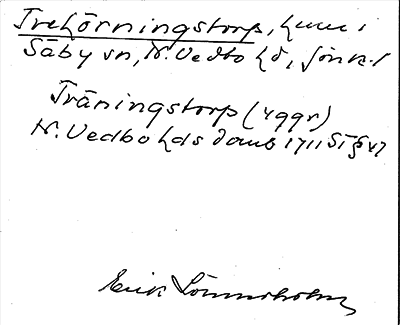 Trehörningstorp, hmn i
Säby sn, N. Vedbo hd, Jönk. l
Träningstorp (4ggr)
N. Vedbo hds domb 1711 ST § 47
Erik Lönnerholm